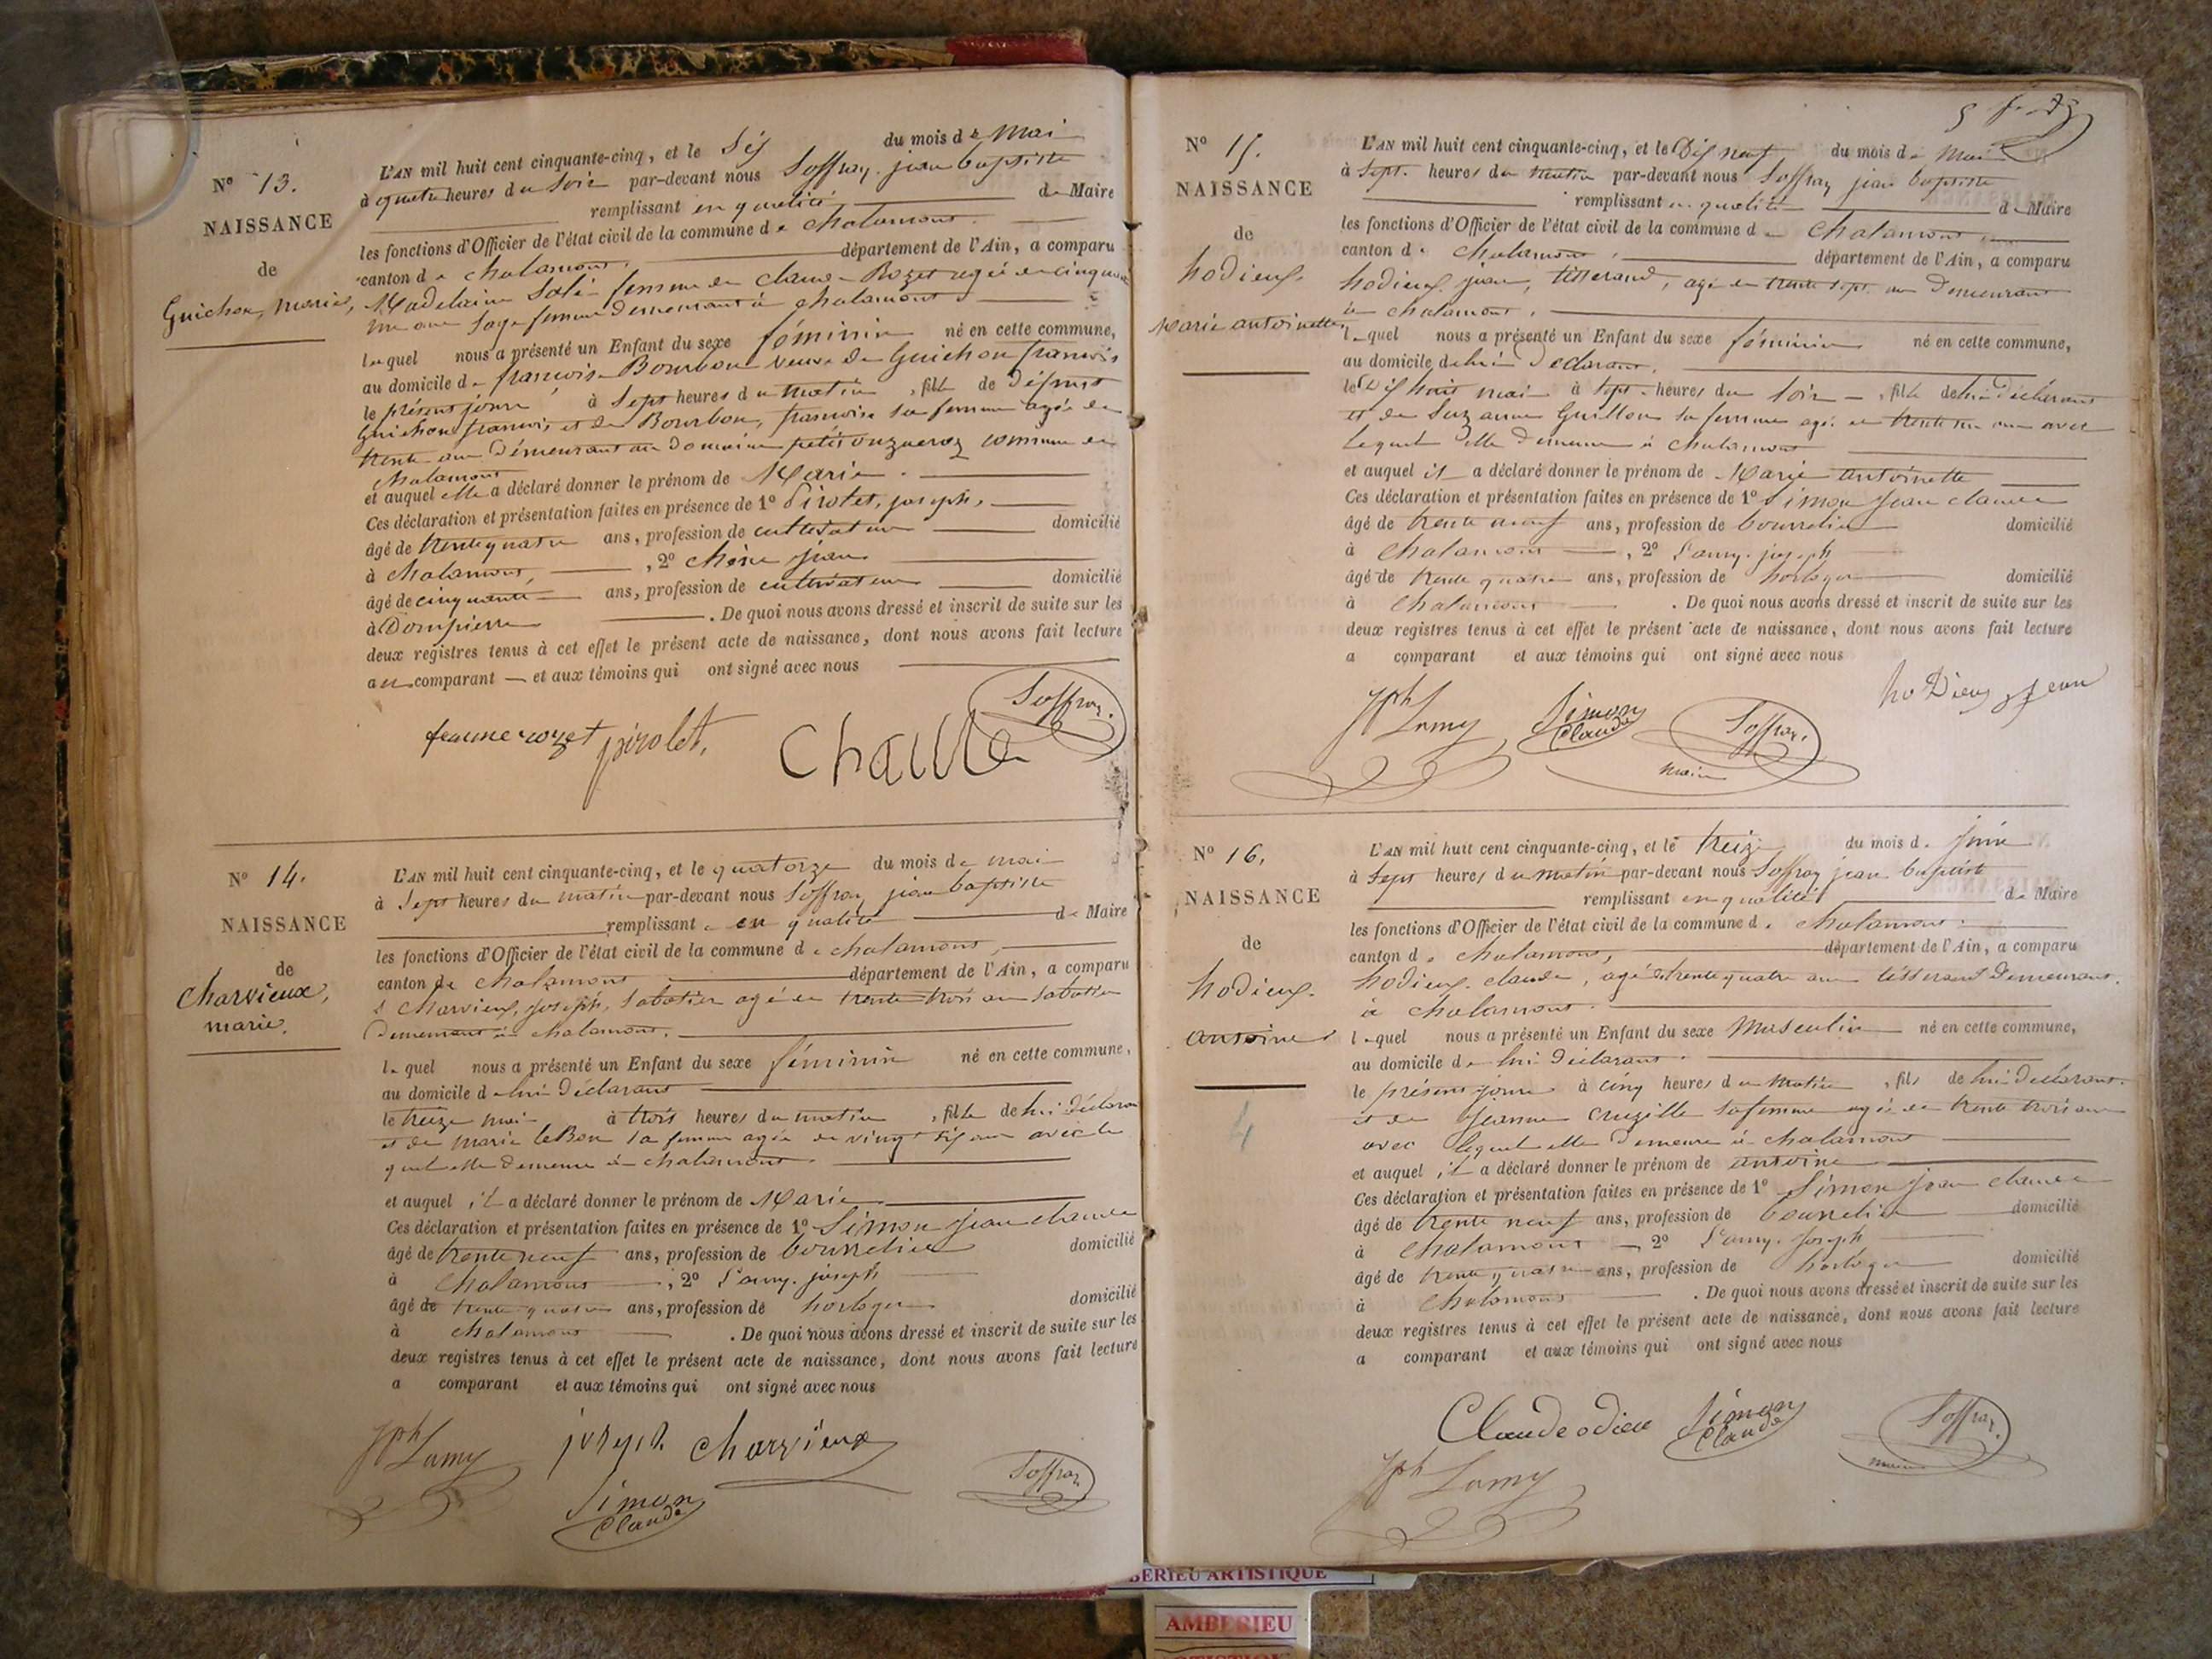 N° 13.
NAISSANCE
de
Guichon, Marie,
L'AN mil huit cent cinquante-cinq, et le Six du mois de Mai
à quatre heures du Soir par-devant nous Soffray, jean baptiste
remplissant en qualité de Maire
les fonctions d'Officier de l'état civil de la commune de Chalamont
canton de Chalamont, département de l'Ain, a comparu
Madelaine femme de Claude Rozet agée de cinquante
un ans Sage femme demeurant à Chalamont
laquel nous a présenté un Enfant du sexe féminin né en cette commune,
au domicile de françoise Bourbon veuve de Guichon françois
le présent jour à Sept heures du matin, fille de Défunt
Guichon françois et de Bourbon, françoise sa femme agée de
trente ans Demeurant au domaine petit commune de
Chalamont
et auquel elle a déclaré donner le prénom de Marie.
Ces déclaration et présentation faites en présence de 1° Pirolet, joseph,
âgé de trente quatre ans, profession de cultivateur domicilié
à Chalamont, , 2° Chêne jean
âgé de cinquante ans, profession de cultivateur domicilié
à Dompierre . De quoi nous avons dressé et inscrit de suite sur les
deux registres tenus à cet effet le présent acte de naissance, dont nous avons fait lecture
au comparant — et aux témoins qui ont signé avec nous
Soffray.
jeanne rozet pirolet,
N° 14.
NAISSANCE
de
Charvieux,
marie.
L'AN mil huit cent cinquante-cinq, et le quatorze du mois de mai
à Sept heures du matin par-devant nous Soffray jean baptiste
remplissant en qualité de Maire
les fonctions d'Officier de l'état civil de la commune de Chalamont,
canton de Chalamont département de l'Ain, a comparu
Charvieux, joseph, Sabotier agé de trente trois ans Sabotier
Demeurant à Chalamont.
lequel nous a présenté un Enfant du sexe féminin né en cette commune,
au domicile de lui Déclarant
le treize mai à trois heures du matin, fille de lui Déclarant
et de Marie leBon sa femme agée de vingt six ans avec le
quel elle demeure à Chalamont.
et auquel il a déclaré donner le prénom de Marie
Ces déclaration et présentation faites en présence de 1° Simon jean claude
âgé de trente neuf ans, profession de bourrelier domicilié
à Chalamont , 2° Lamy. joseph
âgé de trente quatre ans, profession de horloger domicilié
à Chalamont . De quoi nous avons dressé et inscrit de suite sur les
deux registres tenus à cet effet le présent acte de naissance, dont nous avons fait lecture
a comparant et aux témoins qui ont signé avec nous
Jph Lamy joseph Charvieux
Simon Claude
Soffray
N° 15.
NAISSANCE
de
hodieux.
Marie antoinette
L'AN mil huit cent cinquante-cinq, et le Dix neuf du mois de Mai
à Sept. heures du matin par-devant nous Soffray jean baptiste
remplissant en qualité de Maire
les fonctions d'Officier de l'état civil de la commune de Chalamont,
canton de Chalamont, département de l'Ain, a comparu
hodieux jean, tisserand, agé de trente sept ans Demeurant
à Chalamont,
lequel nous a présenté un Enfant du sexe féminin né en cette commune,
au domicile de lui Déclarant.
le Dix huit mai à Sept heures du Soir, fille de lui Déclarant
et de Suzanne Guillon sa femme agée de trente un ans avec
lequel elle Demeure à Chalamont
et auquel il a déclaré donner le prénom de Marie antoinette
Ces déclaration et présentation faites en présence de 1° Simon jean claude
âgé de trente neuf ans, profession de bourrelier domicilié
à Chalamont , 2° Lamy. joseph
âgé de trente quatre ans, profession de horloger domicilié
à Chalamont . De quoi nous avons dressé et inscrit de suite sur les
deux registres tenus à cet effet le présent acte de naissance, dont nous avons fait lecture
a comparant et aux témoins qui ont signé avec nous
Jph Lamy Simon Claude Soffray. maire hoDieux jean
N° 16.
NAISSANCE
de
hodieux.
antoine
4
L'AN mil huit cent cinquante-cinq, et le treize du mois de juin
à Sept heures du matin par-devant nous Soffray jean baptiste
remplissant en qualité de Maire
les fonctions d'Officier de l'état civil de la commune de Chalamont.
canton de Chalamont, département de l'Ain, a comparu
hodieux. claude, agé de trente quatre ans tisserand Demeurant
à Chalamont.
lequel nous a présenté un Enfant du sexe Masculin né en cette commune,
au domicile de lui Déclarant.
le présent jour à cinq heures du matin, fils de lui Déclarant
et de Jeanne Cruzille sa femme agée de trente trois ans
avec lequel elle Demeure à Chalamont
et auquel il a déclaré donner le prénom de antoine
Ces déclaration et présentation faites en présence de 1° Simon jean claude
âgé de trente neuf ans, profession de bourrelier domicilié
à Chalamont , 2° Lamy. joseph
âgé de trente quatre ans, profession de horloger domicilié
à Chalamont . De quoi nous avons dressé et inscrit de suite sur les
deux registres tenus à cet effet le présent acte de naissance, dont nous avons fait lecture
a comparant et aux témoins qui ont signé avec nous
Claude odieu Simon Claude Soffray. maire
Jph Lamy
BERIEU ARTISTIQUE
AMBERIEU